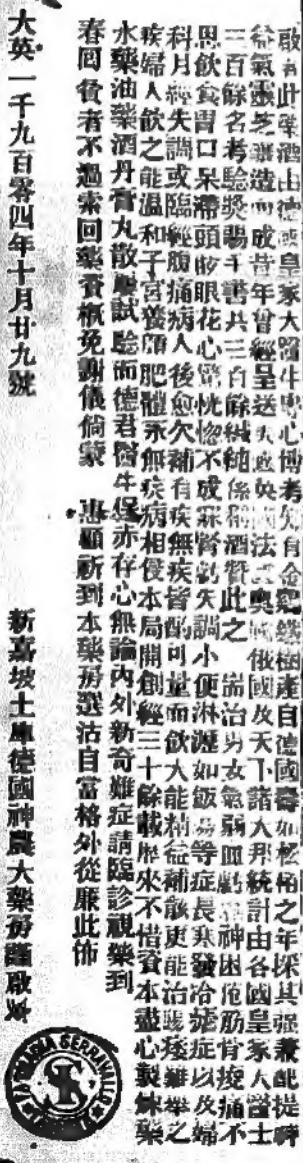 啟者此藥酒由德國皇家大醫生專心博考知有金雞鐵樹產自德國壽如松柏之年採其强兼配提
益氣靈芝製造而成昔年曾經呈送大英國法國奧國俄國及天下諸大邦統計由各國皇家大醫士
三百餘名考驗獎賜手書共三百餘緘純係酒贊此之 耑治男女氣弱血虧精神困倦筋骨痠痛不
思飲食胃口呆滯頭眩眼花心驚恍惚不成寐腎虧失調小便淋瀝如飯等症長寒發冷瘧症以及婦
科月經失調或臨經腹痛病人後愈欠補有疾無疾皆酌可量而飲大能精益補骸更能治陽痿難舉之
疾婦人飲之能温和子宮養顏肥體永無疾病相侵本局開創經三十餘載歷來不惜資本盡心製煉藥
水藥油藥酒丹膏丸散屢試驗而德君醫生保赤存心無論內外新奇難症請臨診視藥到
春回貧者不過索回藥費概免謝儀倘蒙 惠顧祈到本藥房選沽自當格外從廉此佈
大英一千九百零四年十月廿九號 新嘉坡土庫德國神農大藥房謹啟
SERRAVALLO